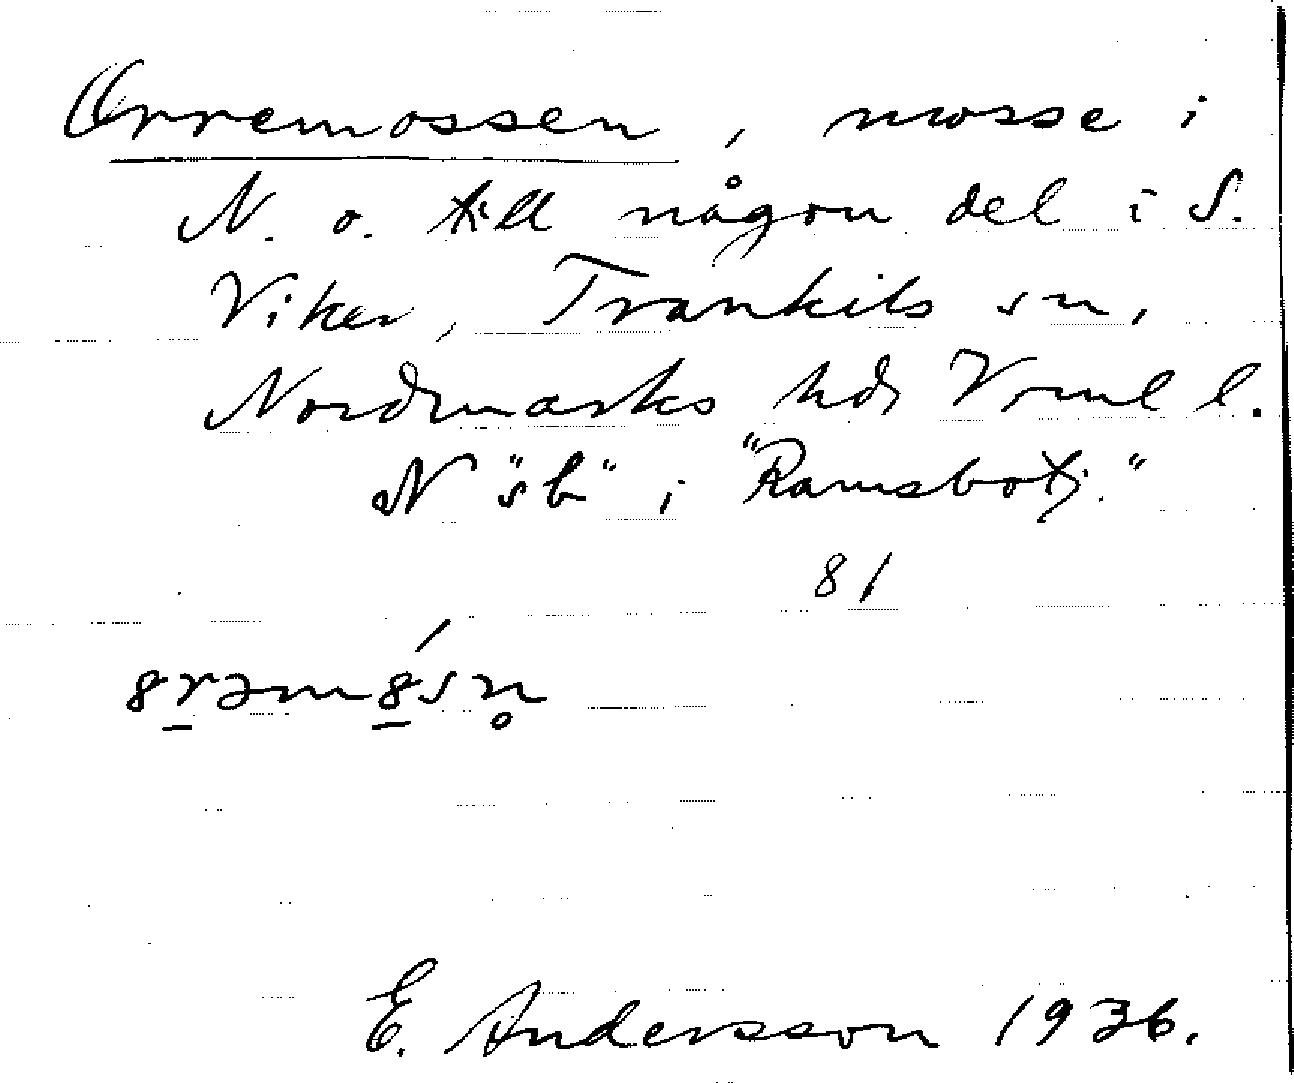 Orremossen, mosse i
N. o. till någon del i S.
Viker, Trankils sn,
Nordmarks hd, Vrml l.
N "sb" i "Ramsbotj."
81
8rəm8́sn̥
E. Andersson 1936.